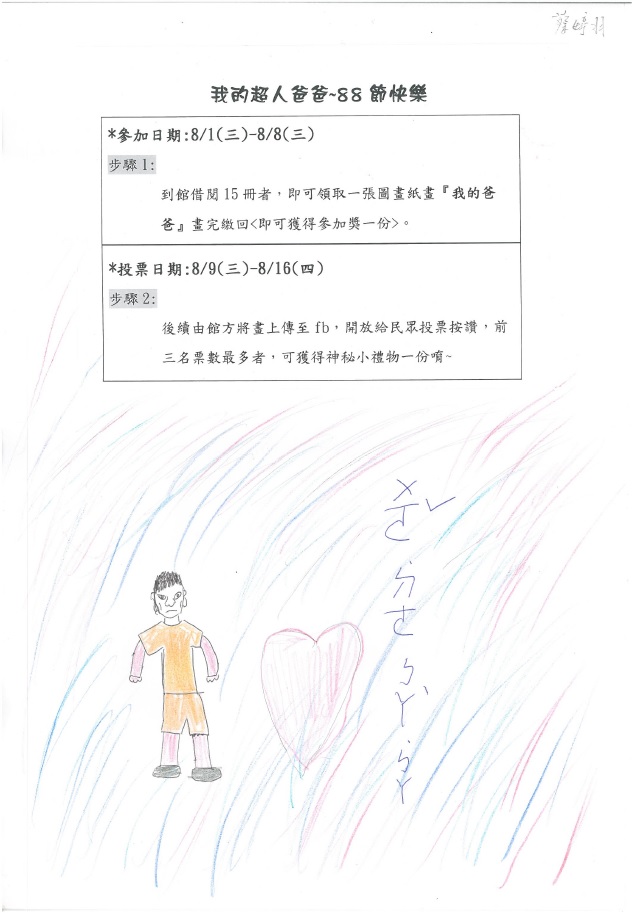 我的超人爸爸~88 節快樂
*參加日期:8/1(三)-8/8(三)
步驟1:
到館借閱 15 冊者，即可領取一張圖畫紙畫『我的爸
爸』畫完繳回<即可獲得參加獎一份>。
*投票日期:8/9(三)-8/16(四)
步驟2:
後續由館方將畫上傳至 fb，開放給民眾投票按讚，前
三名票數最多者，可獲得神秘小禮物一份唷~
ㄨㄛˇ ˙ㄉㄜ ㄅㄚˋ ˙ㄅㄚ